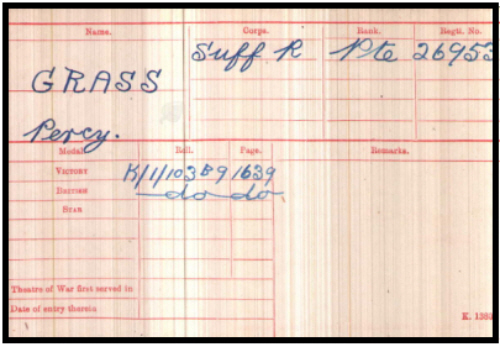 Name. Corps. Rank. Regtl. No.
Suff R Pte 26953
GRASS
Percy.
Medal Roll. Page.  Remarks.
Victory K/1/103 B9 1639
British do do
Star
Theatre of War first served in
Date of entry therein
K. 1380